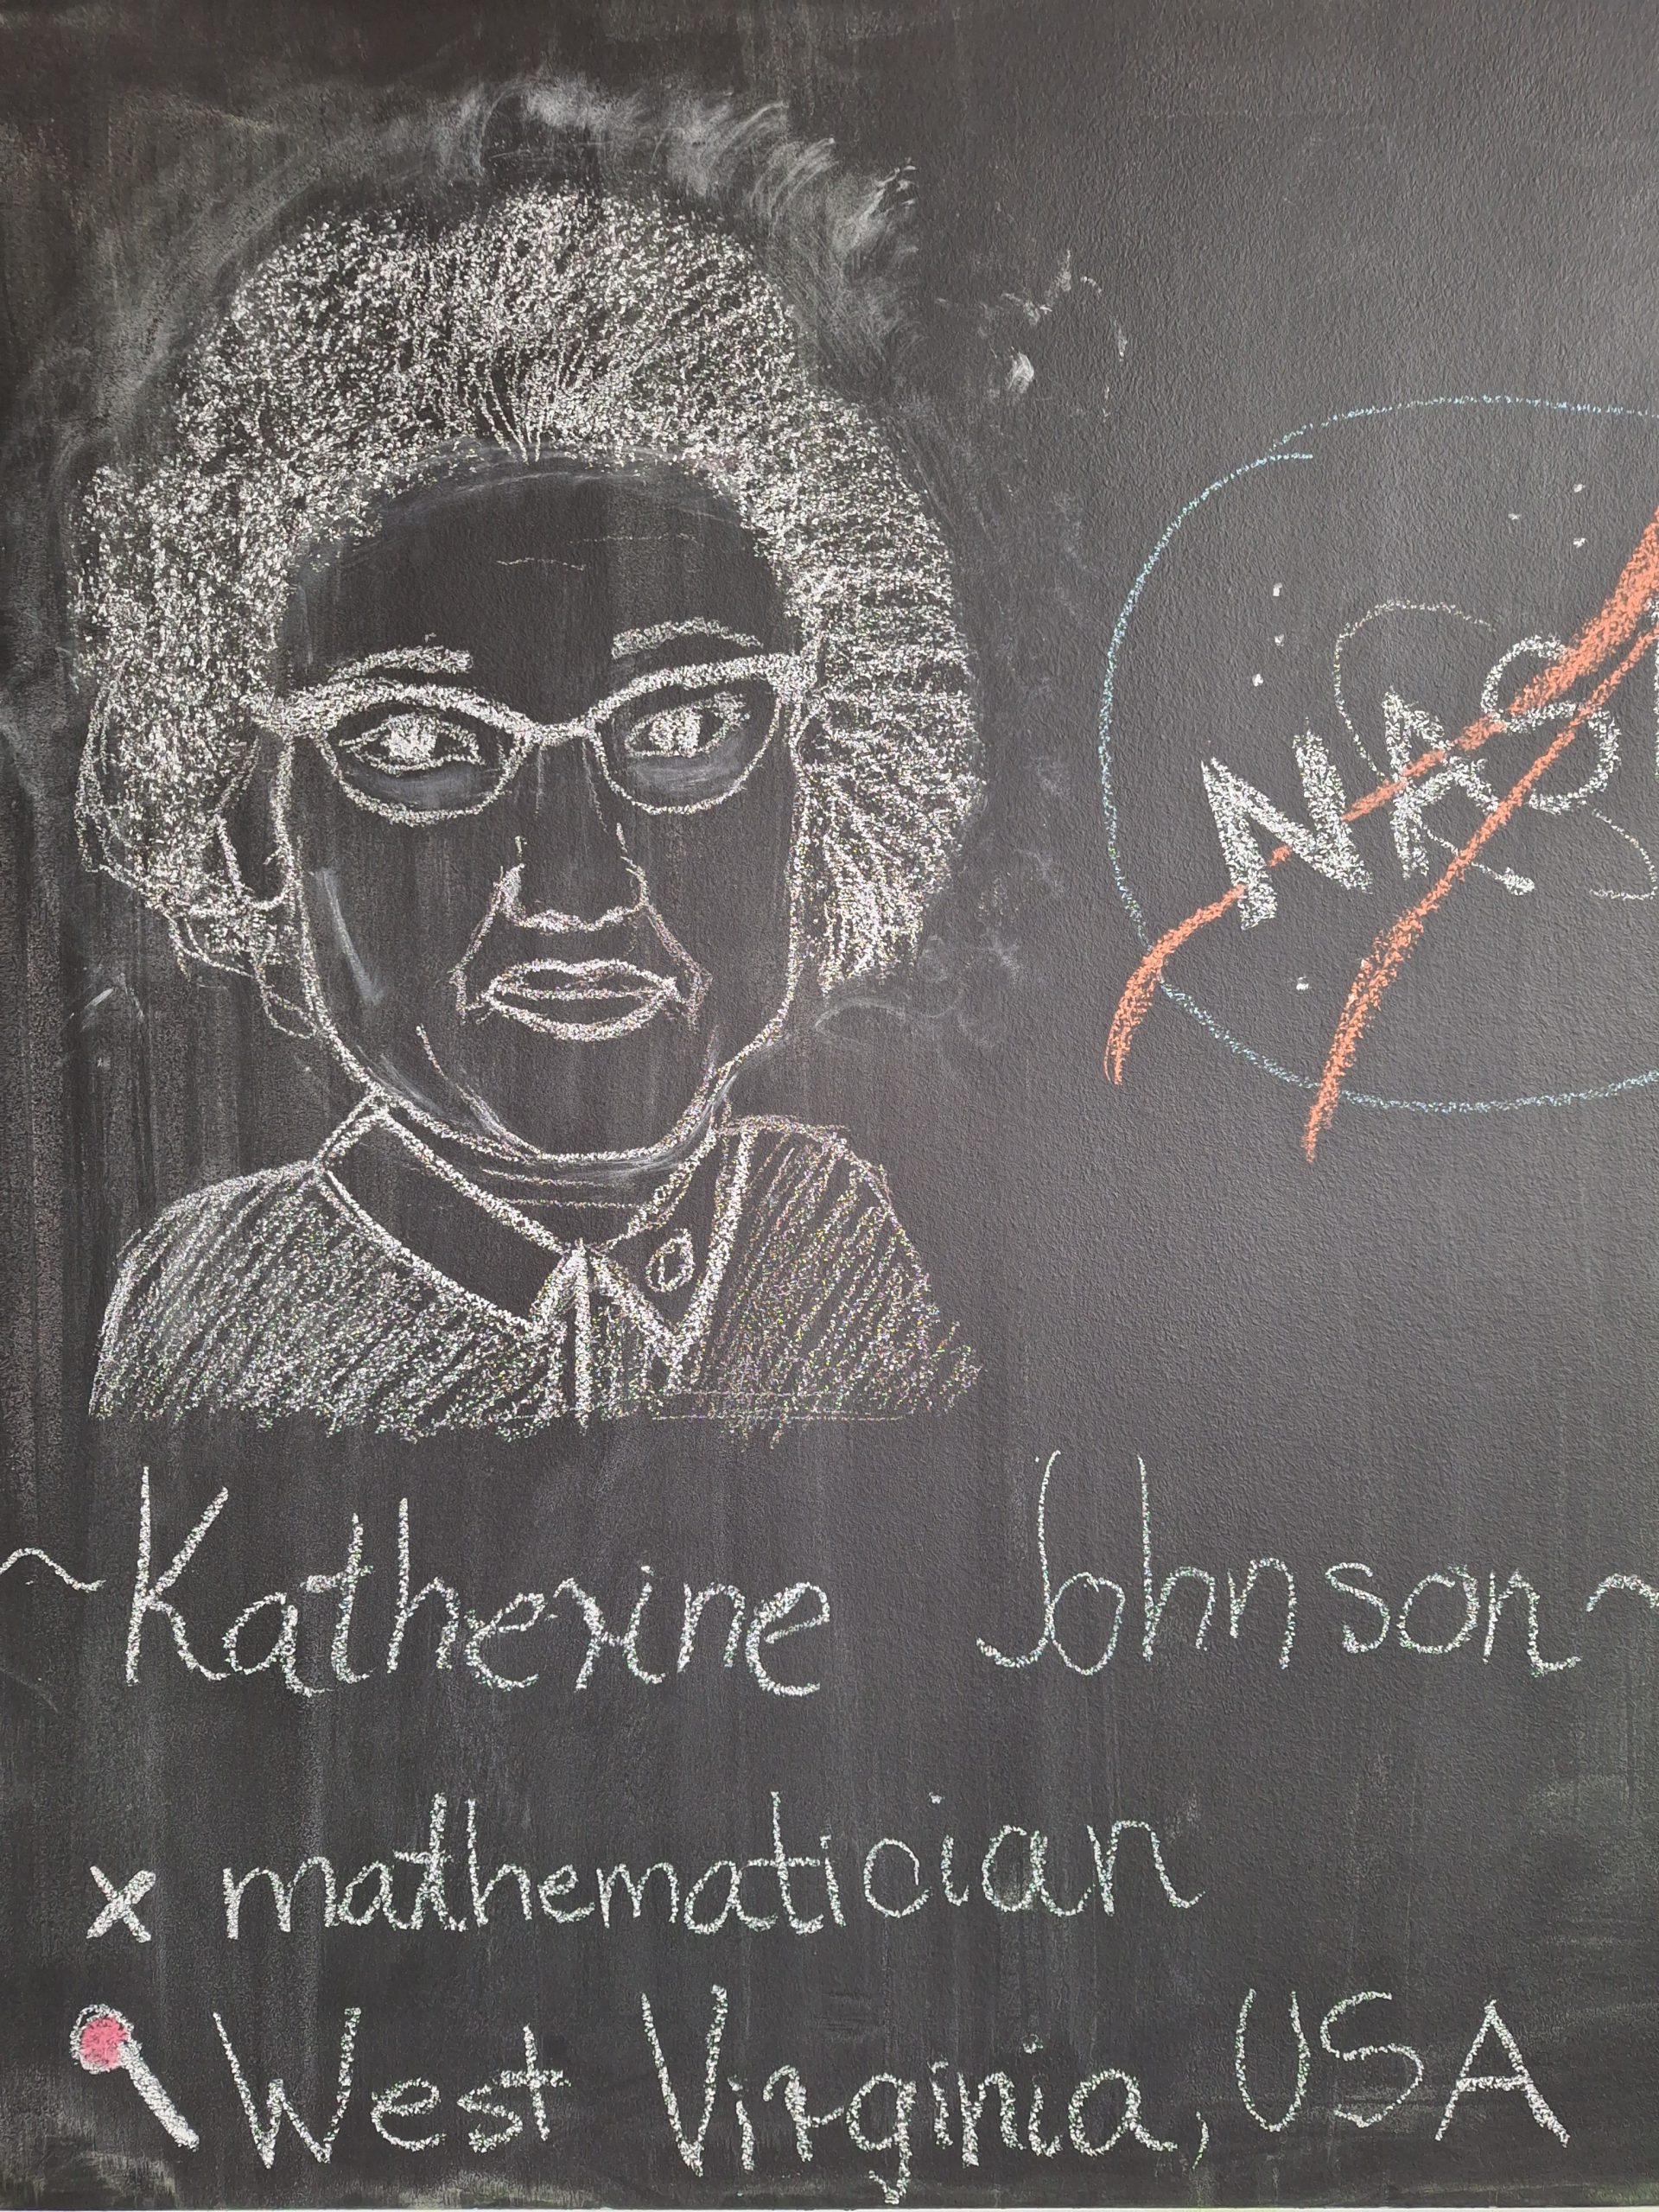 NAS
~Katherine Johnson~
x mathematician
West Virginia, USA